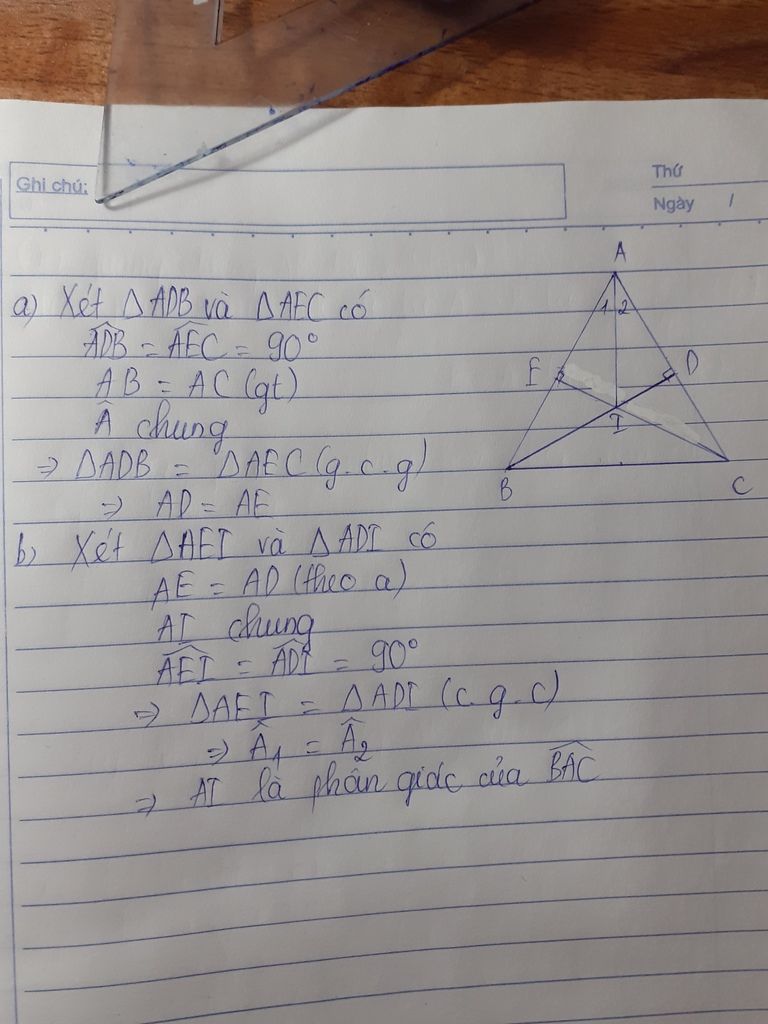 Ghi chú:
Thứ
Ngày /
A
a) Xét ΔADB và ΔAEC có
1 2
ADB = AEC = 90°
E D
AB = AC (gt)
Â chung
I
⇒ ΔADB = ΔAEC (g.c.g)
B C
⇒ AD = AE
b) Xét ΔAEI và ΔADI có
AE = AD (theo a)
AI chung
AEI = ADI = 90°
⇒ ΔAEI = ΔADI (c.g.c)
⇒ Â₁ = Â₂
⇒ AI là phân giác của BAC